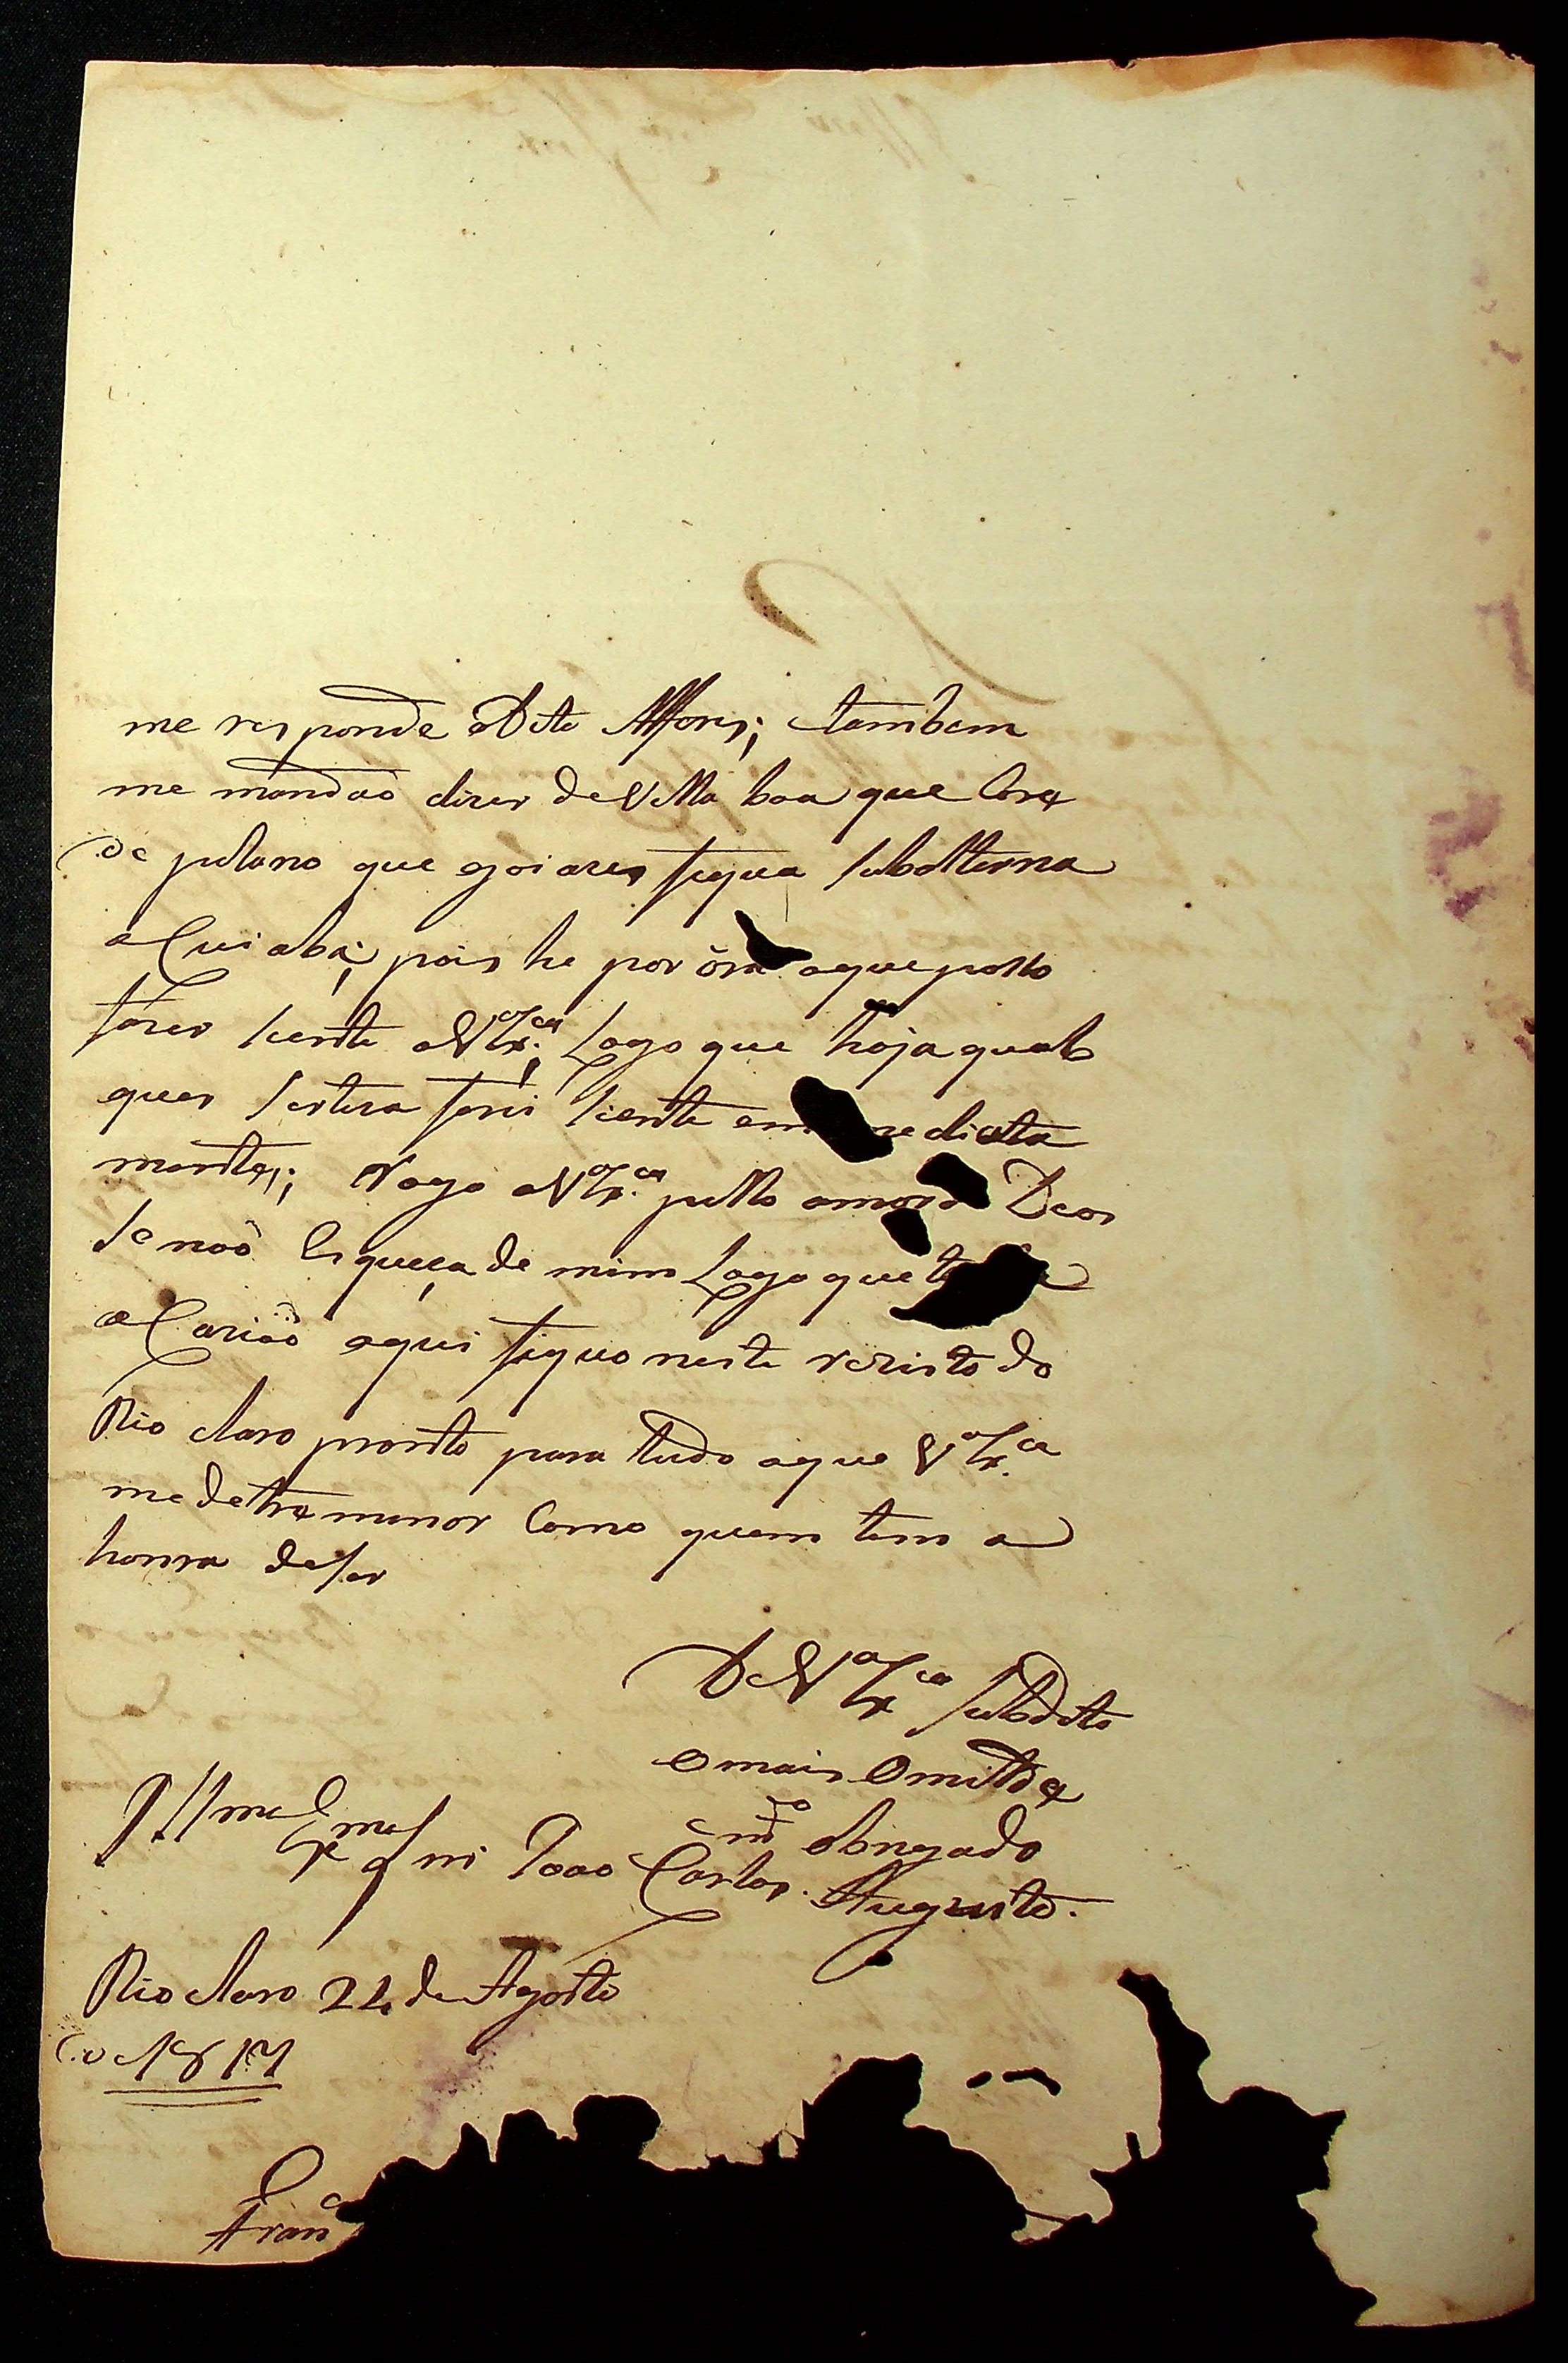 me responde o Dito Alfores; tambem
me mandaõ dizer de Villa boa que Core
de pulano que goiazes fiqua subalterna
a Cuiabá; pois he por óra aque posso
fazer siente a V Ex.ca; Logo que haja qual
quer serteza farei siente em mediata
mente; Rogo a V Ex.ca pello amor d Deos
se naõ Esqueça de mim Logo que te
a Cariaõ aqui fiquo neste rezisto do
Rio claro pronto para tudo aque V Ex.ca
me detreminar Como quem tem a
honra de ser
De V Ex.ca subdito
e mais Omilde
e m.to obrigado
Ill.mo e Ex.mo Snr Joao Carlos Augusto.
Rio claro 24 de Agosto
de 1817
Fran